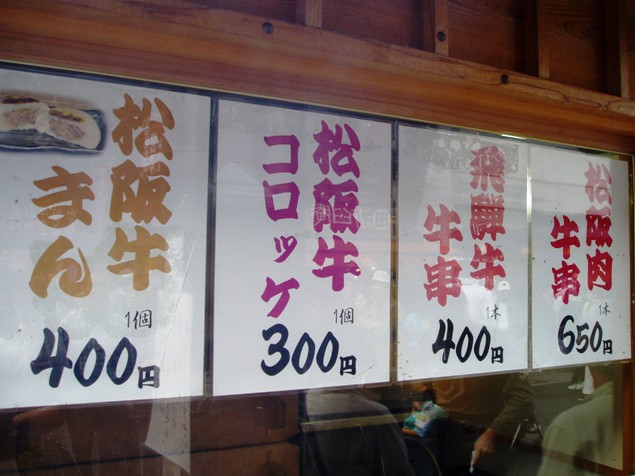 松阪牛
まん
1個
400円
松阪牛
コロッケ
1個
300円
飛騨牛
牛串
1本
400円
松阪肉
牛串
1本
650円